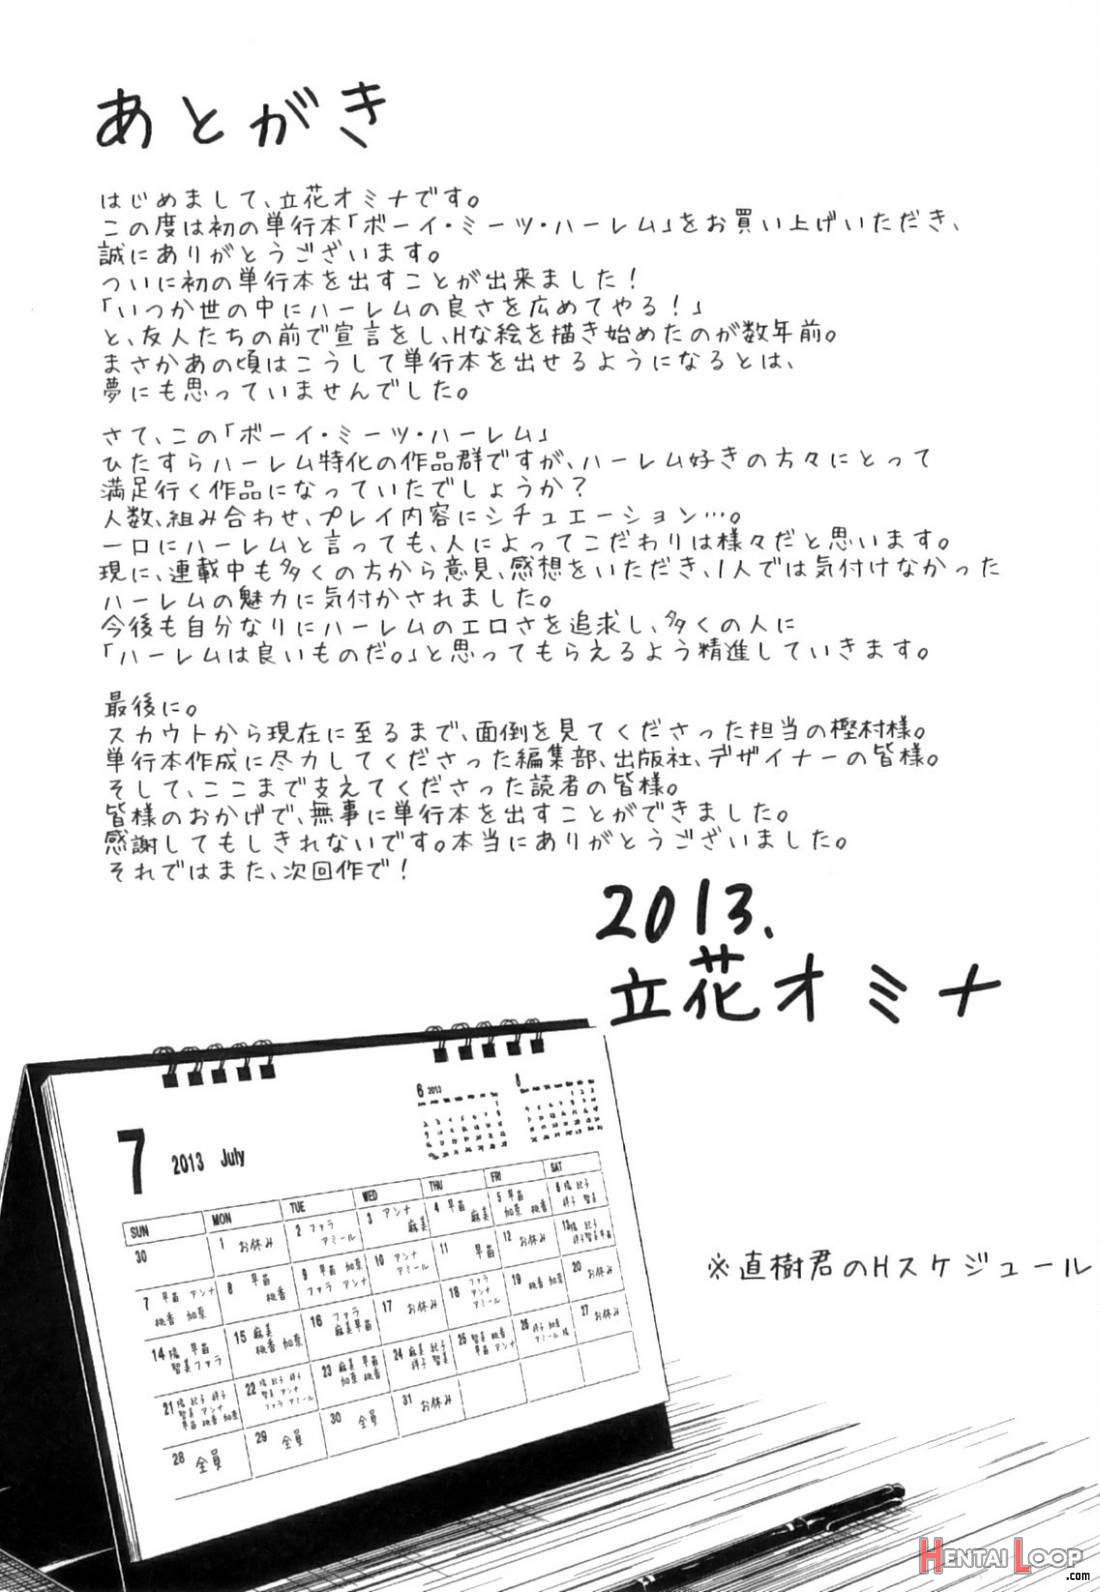 あとがき
はじめまして、立花オミナです。
この度は初の単行本「ボーイ・ミーツ・ハーレム」をお買い上げいただき、
誠にありがとうございます。
ついに初の単行本を出すことが出来ました！
「いつか世の中にハーレムの良さを広めてやる！」
と、友人たちの前で宣言をし、Hな絵を描き始めたのが数年前。
まさかあの頃はこうして単行本を出せるようになるとは、
夢にも思っていませんでした。
さて、この「ボーイ・ミーツ・ハーレム」
ひたすらハーレム特化の作品群ですが、ハーレム好きの方々にとって
満足行く作品になっていたでしょうか？
人数、組み合わせ、プレイ内容にシチュエーション…。
一口にハーレムと言っても、人によってこだわりは様々だと思います。
現に、連載中も多くの方から意見、感想をいただき、1人では気付けなかった
ハーレムの魅力に気付かされました。
今後も自分なりにハーレムのエロさを追求し、多くの人に
「ハーレムは良いものだ。」と思ってもらえるよう精進していきます。
最後に。
スカウトから現在に至るまで、面倒を見てくださった担当の樫村様。
単行本作成に尽力してくださった編集部、出版社、デザイナーの皆様。
そして、ここまで支えてくださった読者の皆様。
皆様のおかげで、無事に単行本を出すことができました。
感謝してもしきれないです。本当にありがとうございました。
それではまた、次回作で！
2013.
立花オミナ
6 2013
8
7 2013 July
SUN MON TUE WED THU FRI SAT
30 1 お休み 2 ファラ アミール 3 アンナ 麻美 4 早苗 麻美 5 早苗 加奈 桃香 6
7 早苗 アンナ 桃香 加奈 8 早苗 桃香 9 早苗 加奈 ファラ アンナ 10 アンナ アミール 11 早苗 12 お休み 13
14 陽 早苗 智美 ファラ 15 麻美 桃香 加奈 16 ファラ 麻美 早苗 17 お休み 18 ファラ アンナ アミール 19 桃香 加奈 20 お休み
21 22 23 麻美 早苗 加奈 桃香 24 25 26 27 お休み
28 全員 29 全員 30 全員 31 お休み
※直樹君のHスケジュール
HENTAI LOOP
.com